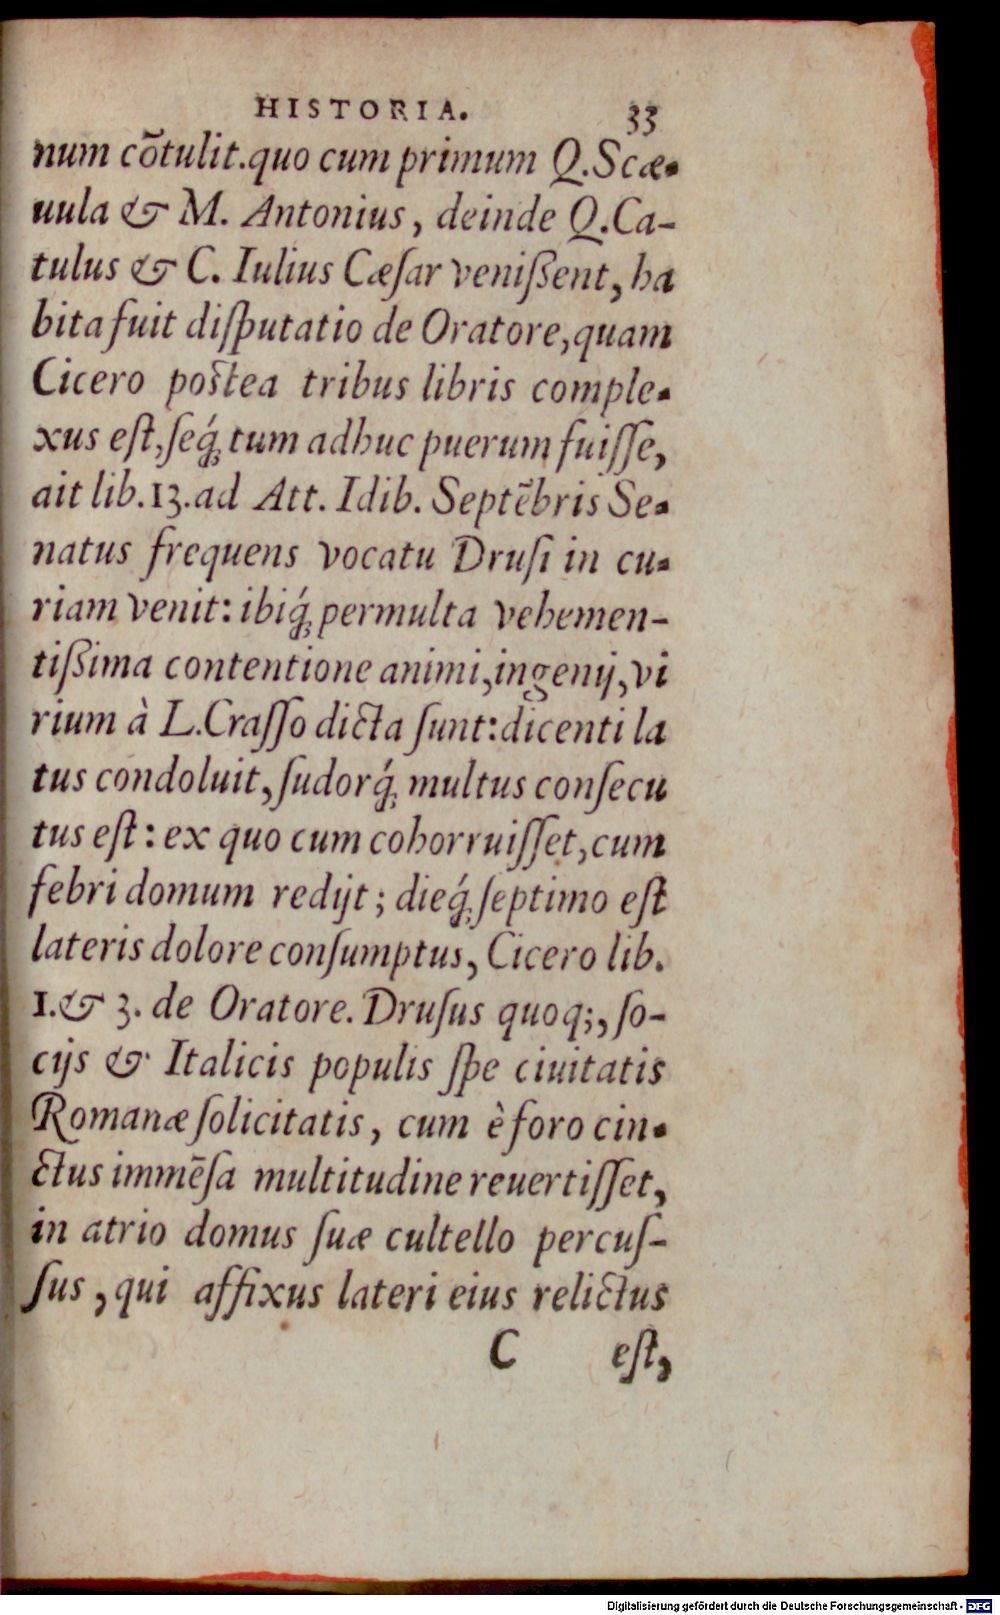 HISTORIA. 33
num cõtulit.quo cum primum Q.Scæ-
uula & M. Antonius, deinde Q.Ca-
tulus & C. Iulius Cæſar venißent, ha
bita fuit diſputatio de Oratore,quam
Cicero postea tribus libris comple-
xus eſt,ſeq́; tum adhuc puerum fuiſſe,
ait lib.13.ad Att. Idib. Septẽbris Se-
natus frequens vocatu Druſi in cu-
riam venit: ibiq́; permulta vehemen-
tißima contentione animi,ingenij,vi
rium à L.Craſſo dicta ſunt:dicenti la
tus condoluit,ſudorq́; multus conſecu
tus eſt: ex quo cum cohorruiſſet,cum
febri domum redijt; dieq́; ſeptimo eſt
lateris dolore conſumptus, Cicero lib.
1.& 3. de Oratore. Druſus quoq;, ſo-
cijs & Italicis populis ſpe ciuitatis
Romanæ ſolicitatis, cum è foro cin-
ctus immẽſa multitudine reuertiſſet,
in atrio domus ſuæ cultello percuſ-
ſus, qui affixus lateri eius relictus
C eſt,
Digitalisierung gefördert durch die Deutsche Forschungsgemeinschaft - DFG